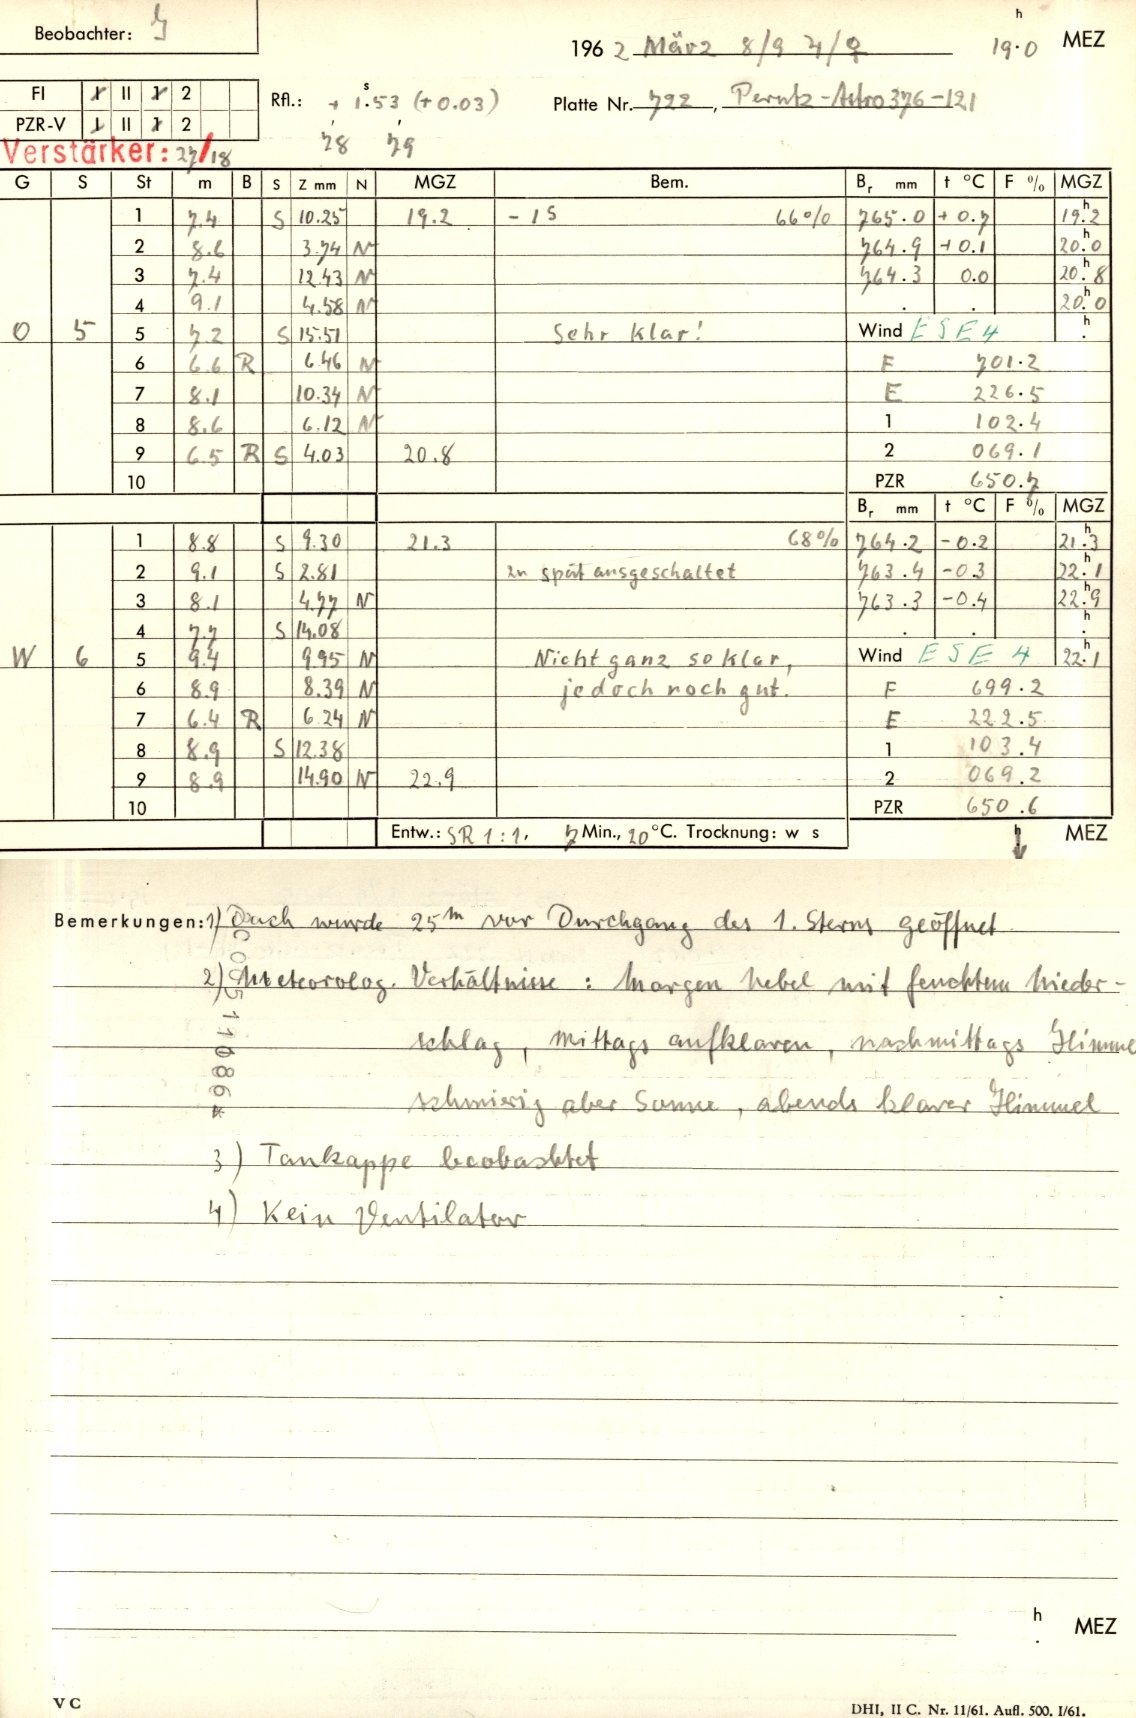 h
Beobachter:
196 2 März 8/9 ♃/♀ 19.0 MEZ
FI I II 1 2
Rfl.: + 1.53 s (+0.03) Platte Nr. 722, Perutz-Astro 376-121
PZR-V I II 1 2
78 79
Verstärker: 27/18
G S St m B S Z mm N MGZ Bem. Br mm t °C F % MGZ
1 7.4 S 10.25 19.2 - 1s 66% 765.0 +0.7 19.2 h
2 8.6 3.74 N 764.9 +0.1 20.0 h
3 7.4 12.43 N 764.3 0.0 20.8 h
4 9.1 4.58 N . . 20.0 h
O 5 5 7.2 S 15.51 Sehr klar! Wind ESE 4 h .
6 6.6 B 6.46 N F 701.2
7 8.1 10.34 N E 226.5
8 8.6 6.12 N 1 102.4
9 6.5 B S 4.03 20.8 2 069.1
10 PZR 650.7
Br mm t °C F % MGZ
1 8.8 S 9.30 21.3 68% 764.2 -0.2 21.3 h
2 9.1 S 2.81 zu spät ausgeschaltet 763.4 -0.3 22.1 h
3 8.1 4.77 N 763.3 -0.4 22.9 h
4 7.7 S 14.08 . . h .
W 6 5 9.4 9.95 N Nicht ganz so klar, Wind ESE 4 22.1 h
6 8.9 8.39 N jedoch noch gut. F 699.2
7 6.4 B 6.24 N E 222.5
8 8.9 S 12.38 1 103.4
9 8.9 14.90 N 22.9 2 069.2
10 PZR 650.6
Entw.: SR 1:1, 7 Min., 20 °C. Trocknung: w s h MEZ
Bemerkungen: 1) Dach wurde 25m vor Durchgang des 1. Sterns geöffnet
2) Meteorolog. Verhältnisse : Morgen Nebel mit feuchtem Nieder-
schlag, mittags aufklaren, nachmittags Himmel
schmierig aber Sonne, abends klarer Himmel
3) Tankappe beobachtet
4) Kein Ventilator
h
. MEZ
V C
DHI, II C. Nr. 11/61. Aufl. 500. I/61.